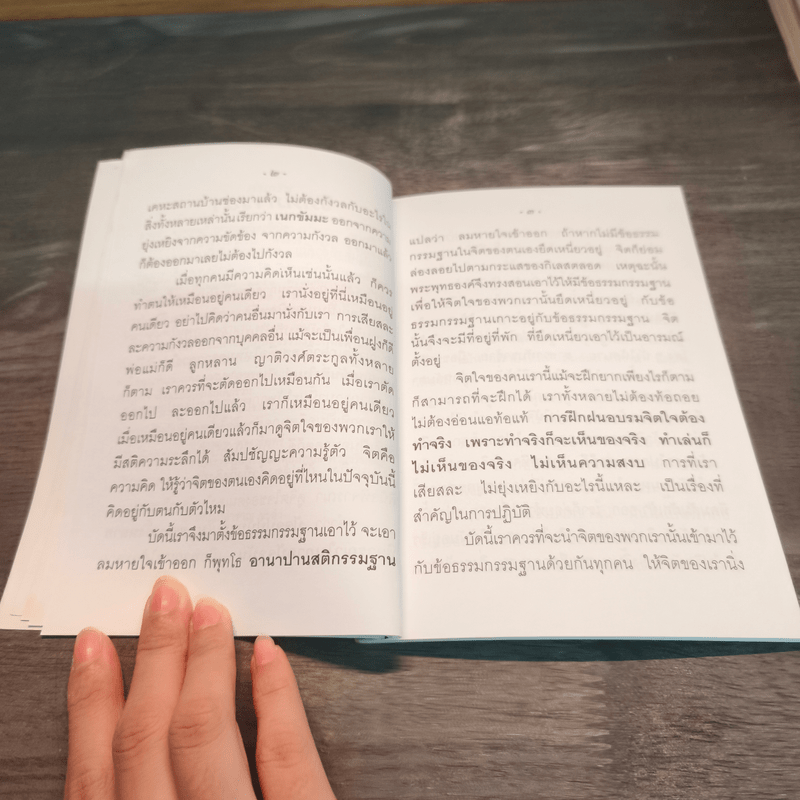 - ๒ -
เคหะสถานบ้านช่องมาแล้ว ไม่ต้องกังวลกับอะไรใน
สิ่งทั้งหลายเหล่านั้น เรียกว่า เนกขัมมะ ออกจากความ
ยุ่งเหยิงจากความขัดข้อง จากความกังวล ออกมาแล้ว
ก็ต้องออกมาเลยไม่ต้องไปกังวล
เมื่อทุกคนมีความคิดเห็นเช่นนั้นแล้ว ก็ควร
ทำตนให้เหมือนอยู่คนเดียว เรานั่งอยู่ที่นี่เหมือนอยู่
คนเดียว อย่าไปคิดว่าคนอื่นมานั่งกับเรา การเสียสละ
ละความกังวลออกจากบุคคลอื่น แม้จะเป็นเพื่อนฝูงก็ดี
พ่อแม่ก็ดี ลูกหลาน ญาติวงศ์ตระกูลทั้งหลาย
ก็ตาม เราควรที่จะตัดออกไปเหมือนกัน เมื่อเราตัด
ออกไป ละออกไปแล้ว เราก็เหมือนอยู่คนเดียว
เมื่อเหมือนอยู่คนเดียวแล้วก็มาดูจิตใจของพวกเราให้
มีสติความระลึกได้ สัมปชัญญะความรู้ตัว จิตคือ
ความคิด ให้รู้ว่าจิตของตนเองคิดอยู่ที่ไหนในปัจจุบันนี้
คิดอยู่กับตนกับตัวไหม
บัดนี้เราจึงมาตั้งข้อธรรมกรรมฐานเอาไว้ จะเอา
ลมหายใจเข้าออก ก็พุทโธ อานาปานสติกรรมฐาน
- ๓ -
แปลว่า ลมหายใจเข้าออก ถ้าหากไม่มีข้อธรรม
กรรมฐานในจิตของตนเองยึดเหนี่ยวอยู่ จิตก็ย่อม
ล่องลอยไปตามกระแสของกิเลสตลอด เหตุฉะนั้น
พระพุทธองค์จึงทรงสอนเอาไว้ให้มีข้อธรรมกรรมฐาน
เพื่อให้จิตใจของพวกเรานั้นยึดเหนี่ยวอยู่ กับข้อ
ธรรมกรรมฐานเกาะอยู่กับข้อธรรมกรรมฐาน จิต
นั้นจึงจะมีที่อยู่ที่พัก ที่ยึดเหนี่ยวเอาไว้เป็นอารมณ์
ตั้งอยู่
จิตใจของคนเรานี้แม้จะฝึกยากเพียงไรก็ตาม
ก็สามารถที่จะฝึกได้ เราทั้งหลายไม่ต้องท้อถอย
ไม่ต้องอ่อนแอท้อแท้ การฝึกฝนอบรมจิตใจต้อง
ทำจริง เพราะทำจริงก็จะเห็นของจริง ทำเล่นก็
ไม่เห็นของจริง ไม่เห็นความสงบ การที่เรา
เสียสละ ไม่ยุ่งเหยิงกับอะไรนี้แหละ เป็นเรื่องที่
สำคัญในการปฏิบัติ
บัดนี้เราควรที่จะนำจิตของพวกเรานั้นเข้ามาไว้
กับข้อธรรมกรรมฐานด้วยกันทุกคน ให้จิตของเรานิ่ง